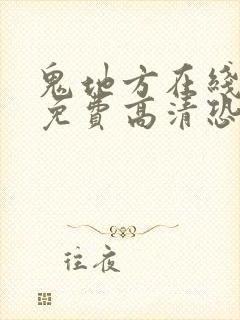 鬼地方在綫
免費高清恐
往夜